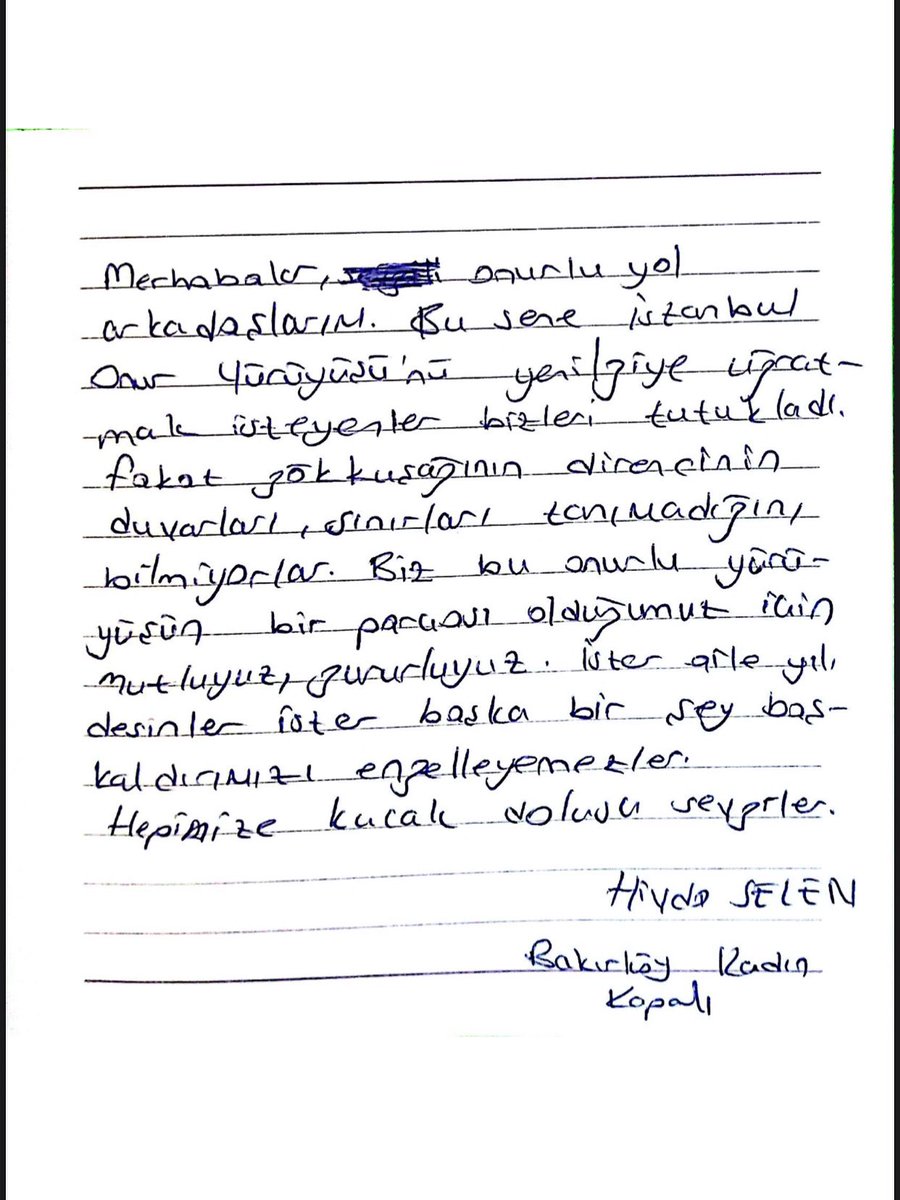 Merhabalar, onurlu yol
arkadaşlarım. Bu sene İstanbul
Onur Yürüyüşü'nü yenilgiye uğrat-
mak isteyenler bizleri tutukladı.
fakat gökkuşağının direncinin
duvarları, sınırları tanımadığını
bilmiyorlar. Biz bu onurlu yürü-
yüşün bir parçası olduğumuz için
mutluyuz, gururluyuz. İster aile yılı
desinler ister başka bir şey baş-
kaldırımızı engelleyemezler.
Hepimize kucak dolusu sevgiler.
Hivda SELEN
Bakırköy Kadın
Kapalı